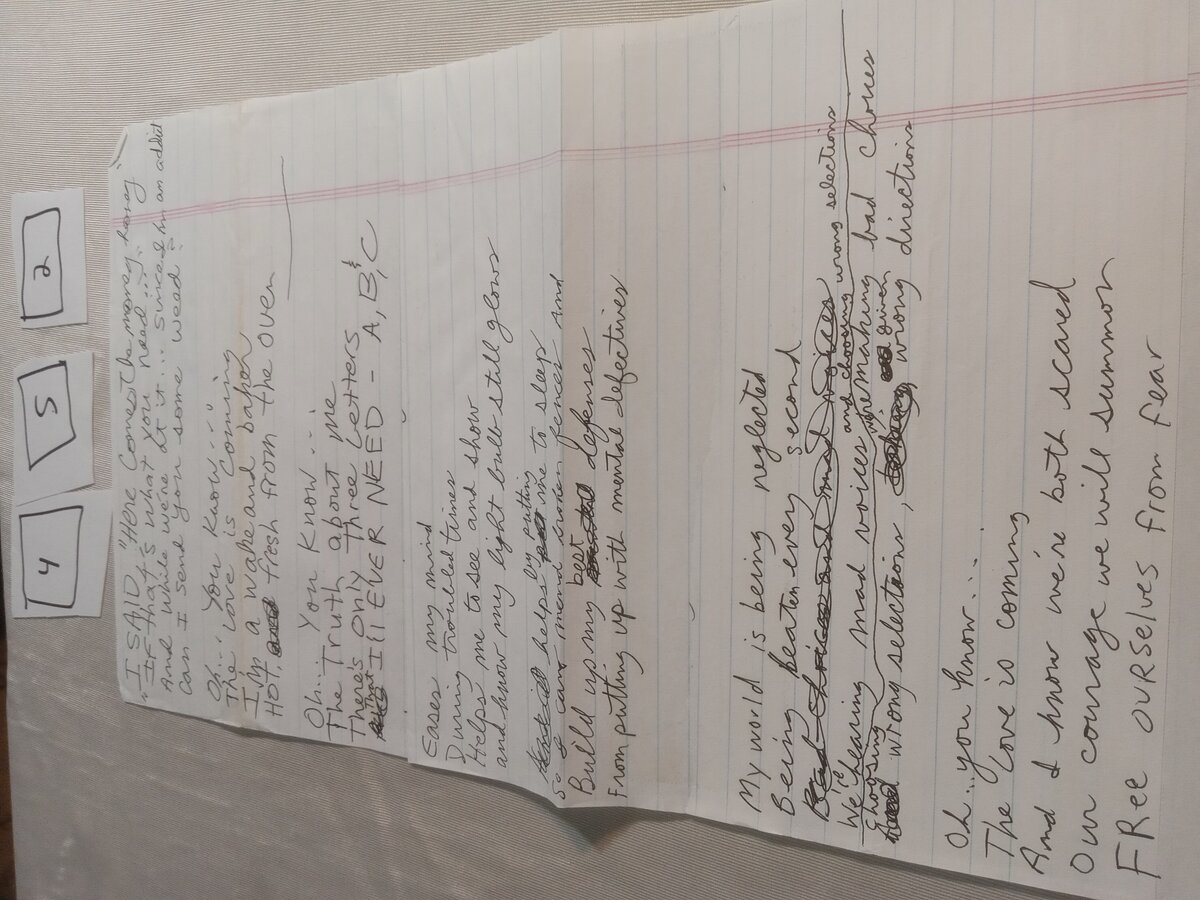 4
5
2
I SAID, "Here Comes the money, honey"
"If that's what you need...
And while we're at it... since I'm an addict
Can I send you some weed?
Oh... you know...
The love is coming
I'm a wake and baker
HOT, fresh from the oven
Oh... you know...
The Truth about me
There's only three letters
that I'll EVER NEED - A, B, & C
Eases my mind
During troubled times
Helps me to see and show
and know my light bulb still glows
helps by putting me to sleep
So I can mend broken fences and
Build up my best defenses
From putting up with mental defectives
My world is being neglected
Being beaten every second
We're hearing mad voices and choosing wrong selections
choosing we're making bad choices
wrong selections, given wrong directions
Oh... you know...
The love is coming
And I know we're both scared
Our courage we will summon
FRee OURSelves from fear